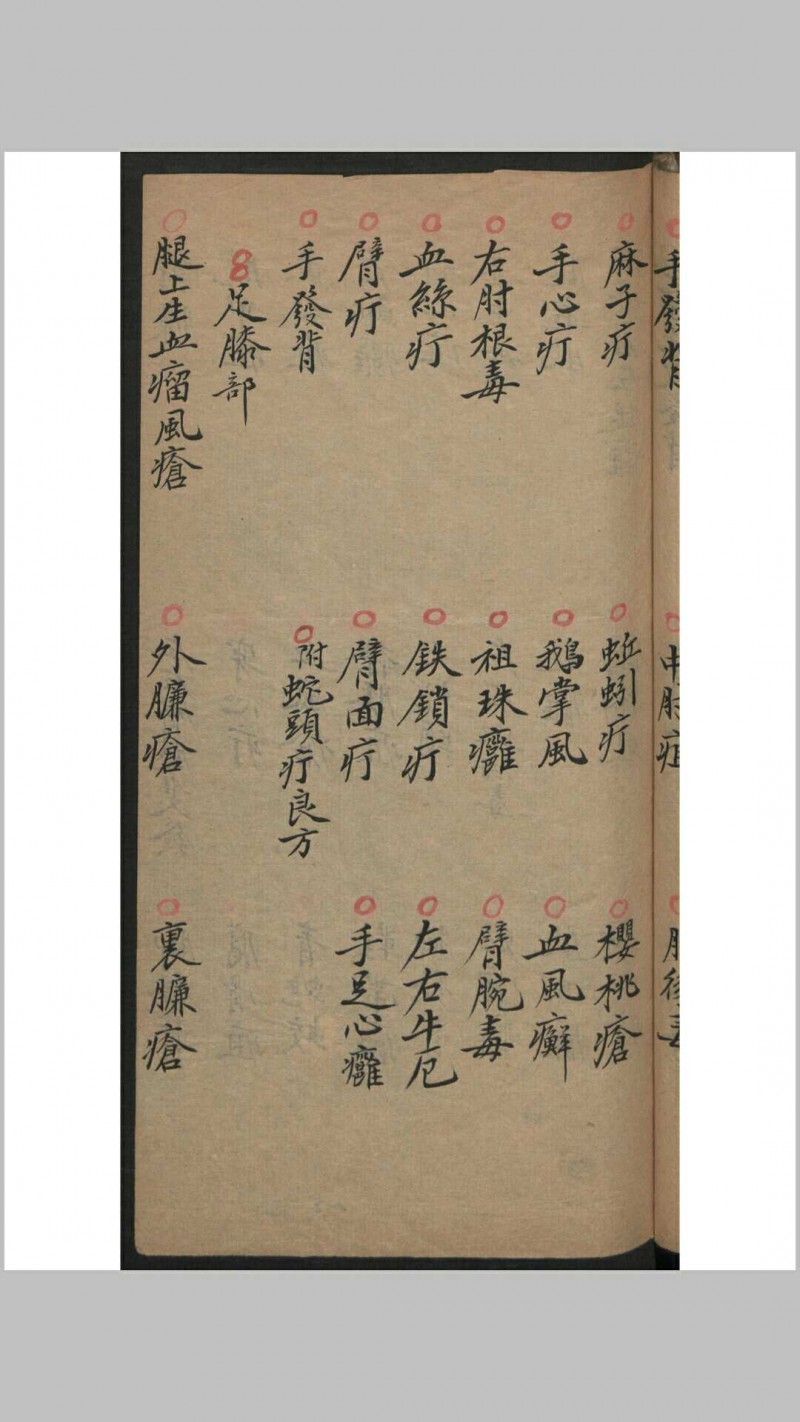 手發背
麻子疔 蚯蚓疔 櫻桃瘡
手心疔 鵝掌風 血風癬
右肘根毒 祖珠癰 臂腕毒
血絲疔 鉄鎖疔 左右牛厄
臂疔 臂面疔 手足心癰
手發背 附蛇頭疔良方
足膝部
腿上生血瘤風瘡 外臁瘡 裏臁瘡